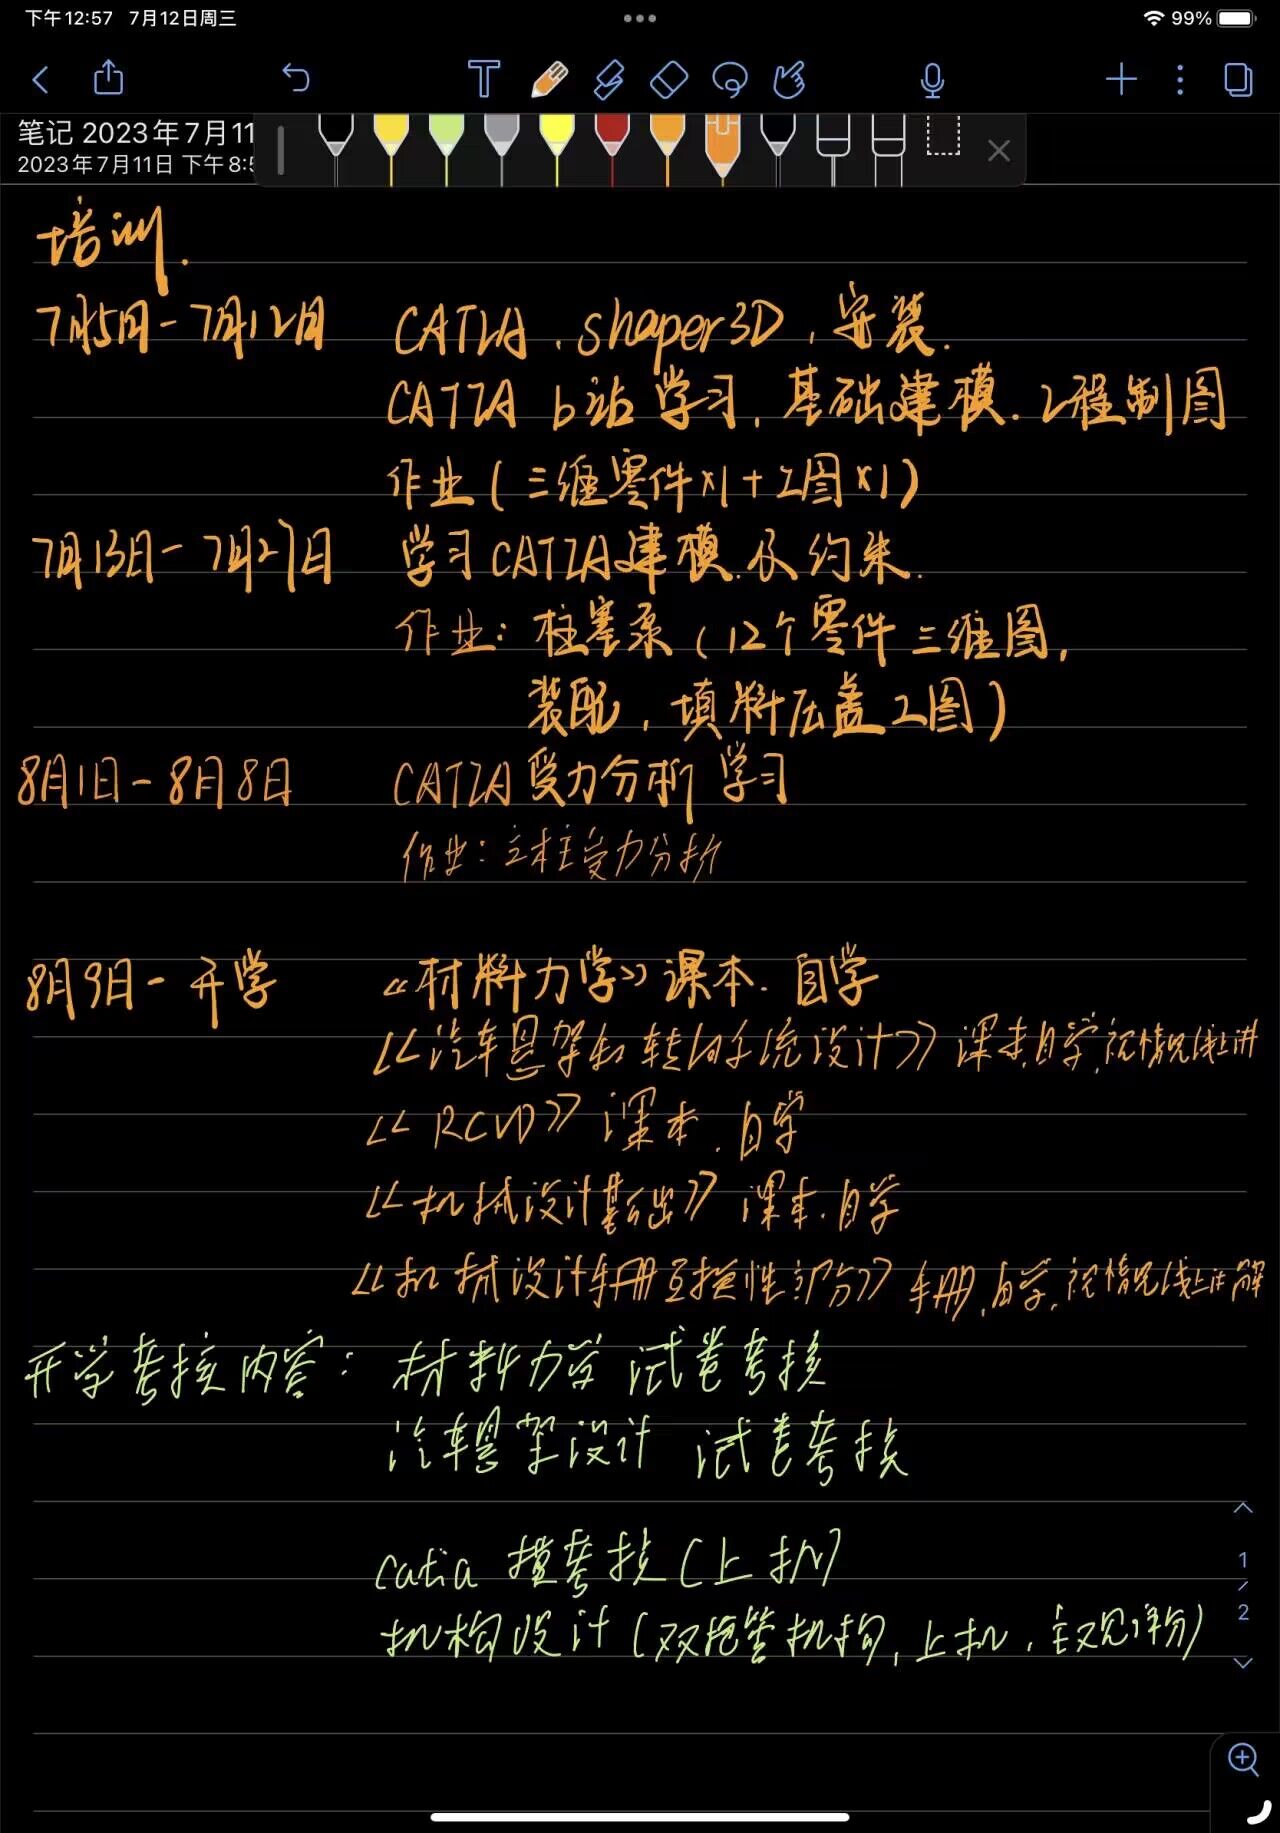 下午12:57 7月12日周三
99%
笔记 2023年7月11
2023年7月11日 下午8:5
培训.
7月5日-7月12日 CATIA、shaper3D,安装.
CATIA b站学习,基础建模.工程制图
作业(三维零件×1+工图×1)
7月13日-7月27日 学习CATIA建模及约束.
作业:柱塞泵(12个零件三维图,
装配,填料压盖工图)
8月1日-8月8日 CATIA受力分析学习
作业:立柱受力分析
8月9日-开学 《材料力学》课本.自学
《汽车悬架和转向系统设计》课本,自学,视情况线上讲
《RCVD》课本.自学
《机械设计基础》课本.自学
《机械设计手册互换性部分》手册,自学,视情况线上讲解
开学考核内容:材料力学 试卷考核
汽车悬架设计 试卷考核
catia 考核(上机)
机构设计(双摇臂机构,上机,主观评分)
1
2